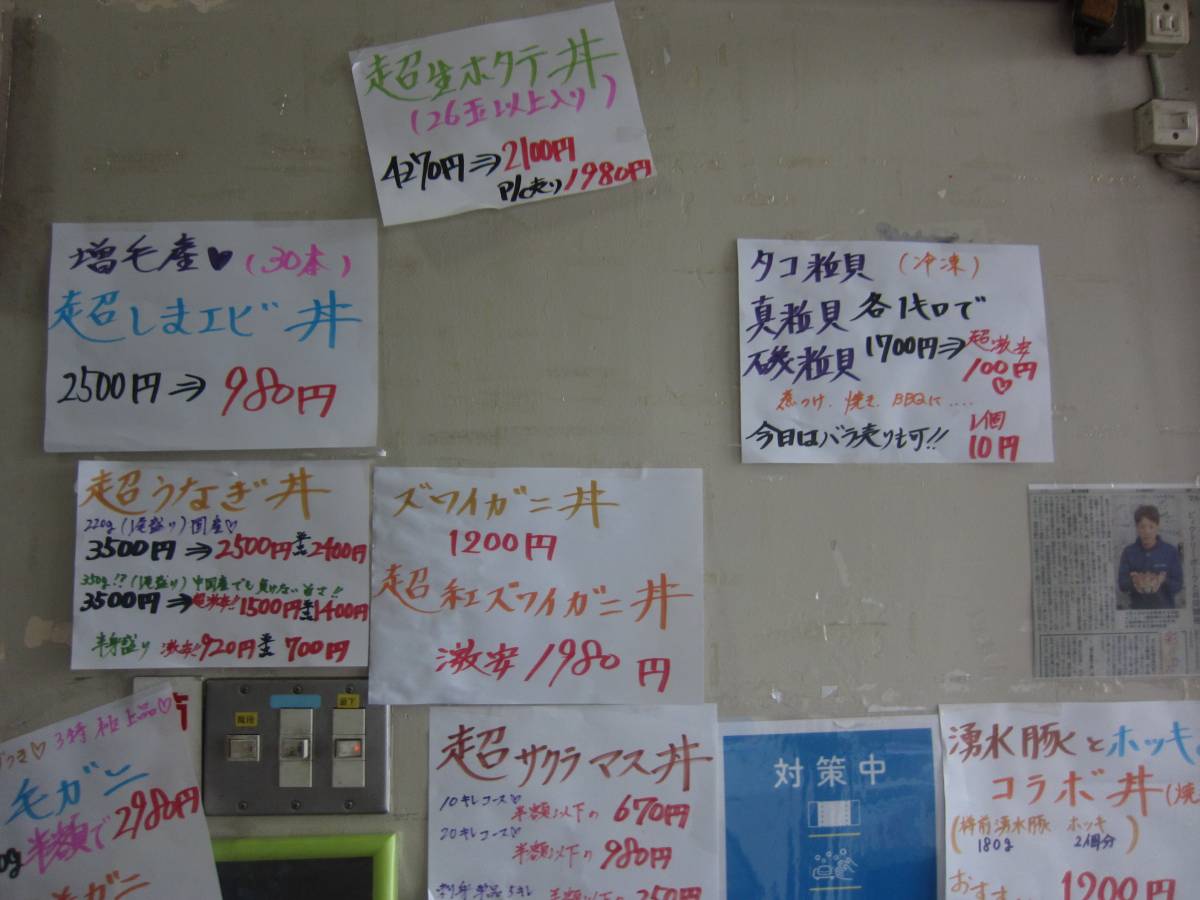 超生ホタテ丼
(26玉以上入り)
4270円⇒2100円
1980円
増毛産♥(30本)
超しまエビ丼
2500円⇒980円
タコ粒貝 (冷凍)
真粒貝 各1キロで
磯粒貝 1700円⇒超激安
100円♡
煮つけ、焼き、BBQに....
今日はバラ売りも可!! 1個
10円
超うなぎ丼
220g(1尾盛り)国産♡
3500円⇒2500円 2400円
350g!?(1尾盛り)中国産でも負けない旨さ!!
3500円⇒超激安!!1500円 1400円
半身盛り 激安!!920円 700円
ズワイガニ丼
1200円
超紅ズワイガニ丼
激安1980円
3特 極上品♡
毛ガニ
半額で2980円
ガニ
超サクラマス丼
10キレコース♡
半額以下の 670円
20キレコース♡
半額以下の 980円
5キレ 半額以下の 350円
対策中
湧水豚とホッキ
コラボ丼(焼
(樽前湧水豚 ホッキ
180g 2個分)
おすす
1200円